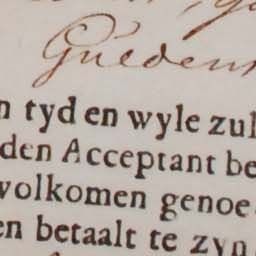 Guldens
n tyd en wyle zul
den Acceptant be
volkomen genoe
en betaalt te zyn